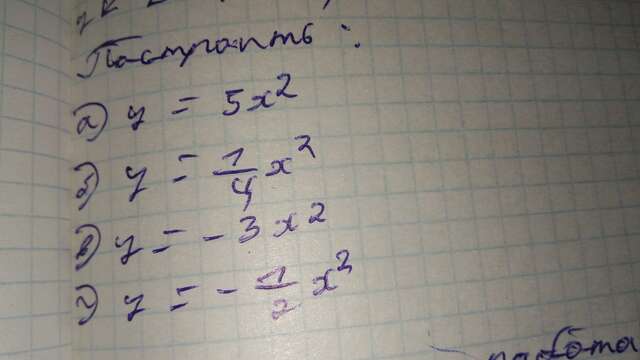 Построить:
а) y = 5x²
б) y = 1/4 x²
в) y = -3x²
г) y = -1/2 x²
работа